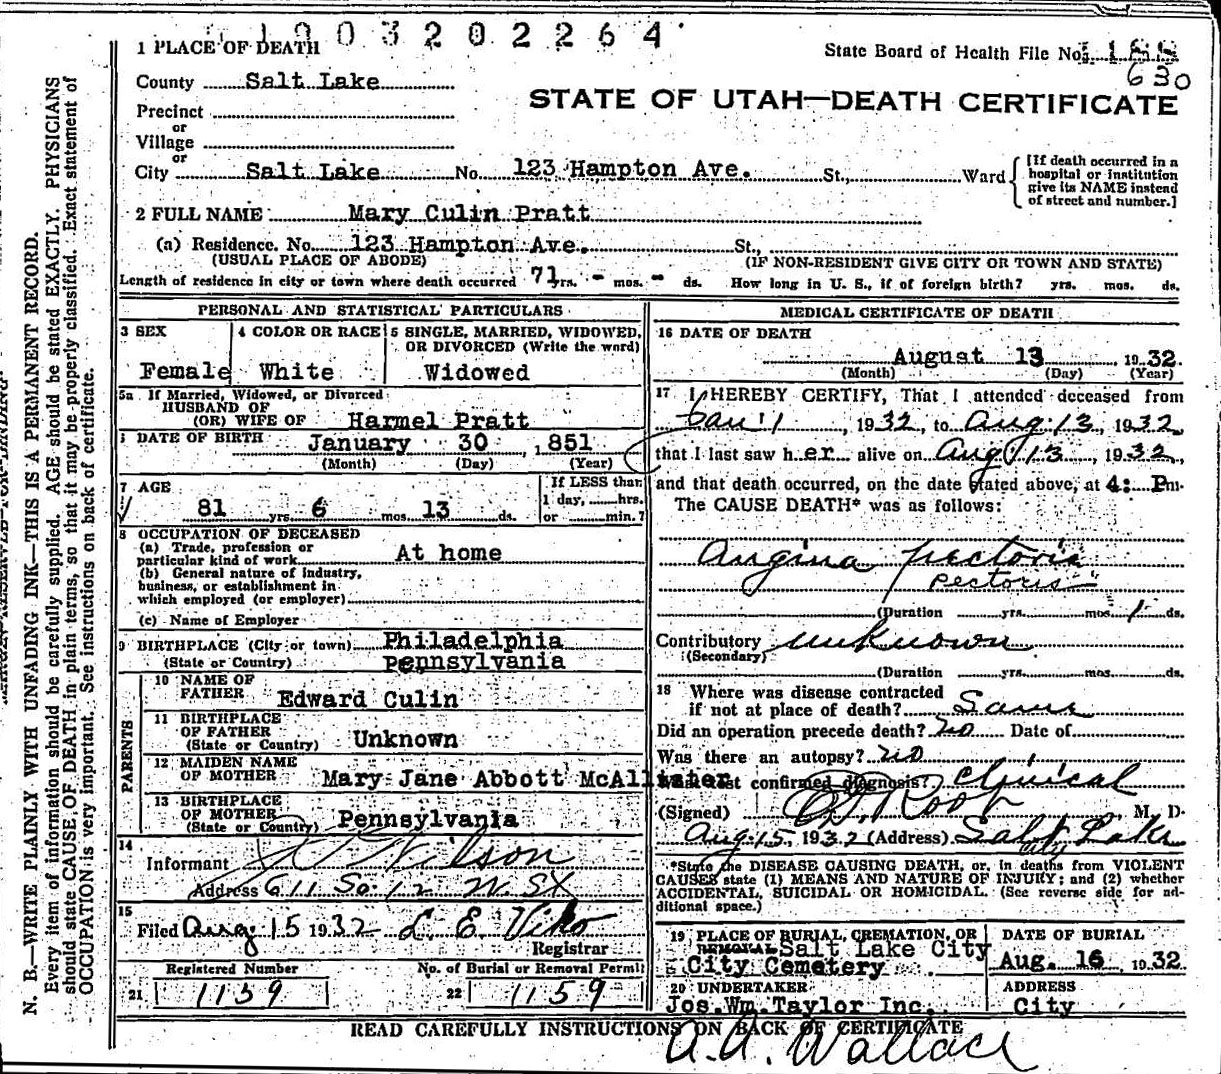 1003202264
1 PLACE OF DEATH
State Board of Health File No.
630
County Salt Lake
STATE OF UTAH—DEATH CERTIFICATE
Precinct
or
Village
or
City Salt Lake No. 123 Hampton Ave. St., Ward
[If death occurred in a
hospital or institution
give its NAME instead
of street and number.]
2 FULL NAME Mary Culin Pratt
(a) Residence. No. 123 Hampton Ave. St.,
(USUAL PLACE OF ABODE) (IF NON-RESIDENT GIVE CITY OR TOWN AND STATE)
Length of residence in city or town where death occurred 71 yrs. - mos. - ds. How long in U. S., if of foreign birth? yrs. mos. ds.
PERSONAL AND STATISTICAL PARTICULARS
3 SEX
Female
4 COLOR OR RACE
White
5 SINGLE, MARRIED, WIDOWED,
OR DIVORCED (Write the word)
Widowed
5a If Married, Widowed, or Divorced
HUSBAND OF
(OR) WIFE OF Harmel Pratt
DATE OF BIRTH January 30, 1851
(Month) (Day) (Year)
7 AGE
81 yrs. 6 mos. 13 ds.
If LESS than
1 day, hrs.
or min.?
8 OCCUPATION OF DECEASED
(a) Trade, profession or
particular kind of work At home
(b) General nature of industry,
business, or establishment in
which employed (or employer)
(c) Name of Employer
9 BIRTHPLACE (City or town) Philadelphia
(State or Country) Pennsylvania
PARENTS
10 NAME OF
FATHER Edward Culin
11 BIRTHPLACE
OF FATHER
(State or Country) Unknown
12 MAIDEN NAME
OF MOTHER Mary Jane Abbott McAllister
13 BIRTHPLACE
OF MOTHER
(State or Country) Pennsylvania
14
Informant Wilson
Address 611 So. 12 W. St
15
Filed Aug 15 1932 L. E. Viko
Registrar
Registered Number
21 1159
No. of Burial or Removal Permit
22 1159
MEDICAL CERTIFICATE OF DEATH
16 DATE OF DEATH
August 13 1932.
(Month) (Day) (Year)
17 I HEREBY CERTIFY, That I attended deceased from
Jan 11, 1932, to Aug 13, 1932,
that I last saw her alive on Aug 13, 1932,
and that death occurred, on the date stated above, at 4: Pm.
The CAUSE DEATH* was as follows:
Angina pectoris
pectoris
(Duration yrs. mos. 1 ds.
Contributory unknown
(Secondary)
(Duration yrs. mos. ds.
18 Where was disease contracted
if not at place of death? Same
Did an operation precede death? no Date of
Was there an autopsy? no
What test confirmed diagnosis? Clinical
(Signed) M. D.
Aug 15, 1932 (Address) Salt Lake
City
*State the DISEASE CAUSING DEATH, or, in deaths from VIOLENT
CAUSES state (1) MEANS AND NATURE OF INJURY; and (2) whether
ACCIDENTAL, SUICIDAL OR HOMICIDAL. (See reverse side for ad-
ditional space.)
19 PLACE OF BURIAL, CREMATION, OR
REMOVAL Salt Lake City
City Cemetery
DATE OF BURIAL
Aug. 16, 1932.
20 UNDERTAKER
Jos. Wm. Taylor Inc.
ADDRESS
City
READ CAREFULLY INSTRUCTIONS ON BACK OF CERTIFICATE
A. A. Wallace
N. B.—WRITE PLAINLY WITH UNFADING INK—THIS IS A PERMANENT RECORD.
Every item of information should be carefully supplied. AGE should be stated EXACTLY. PHYSICIANS
should state CAUSE OF DEATH in plain terms, so that it may be properly classified. Exact statement of
OCCUPATION is very important. See instructions on back of certificate.